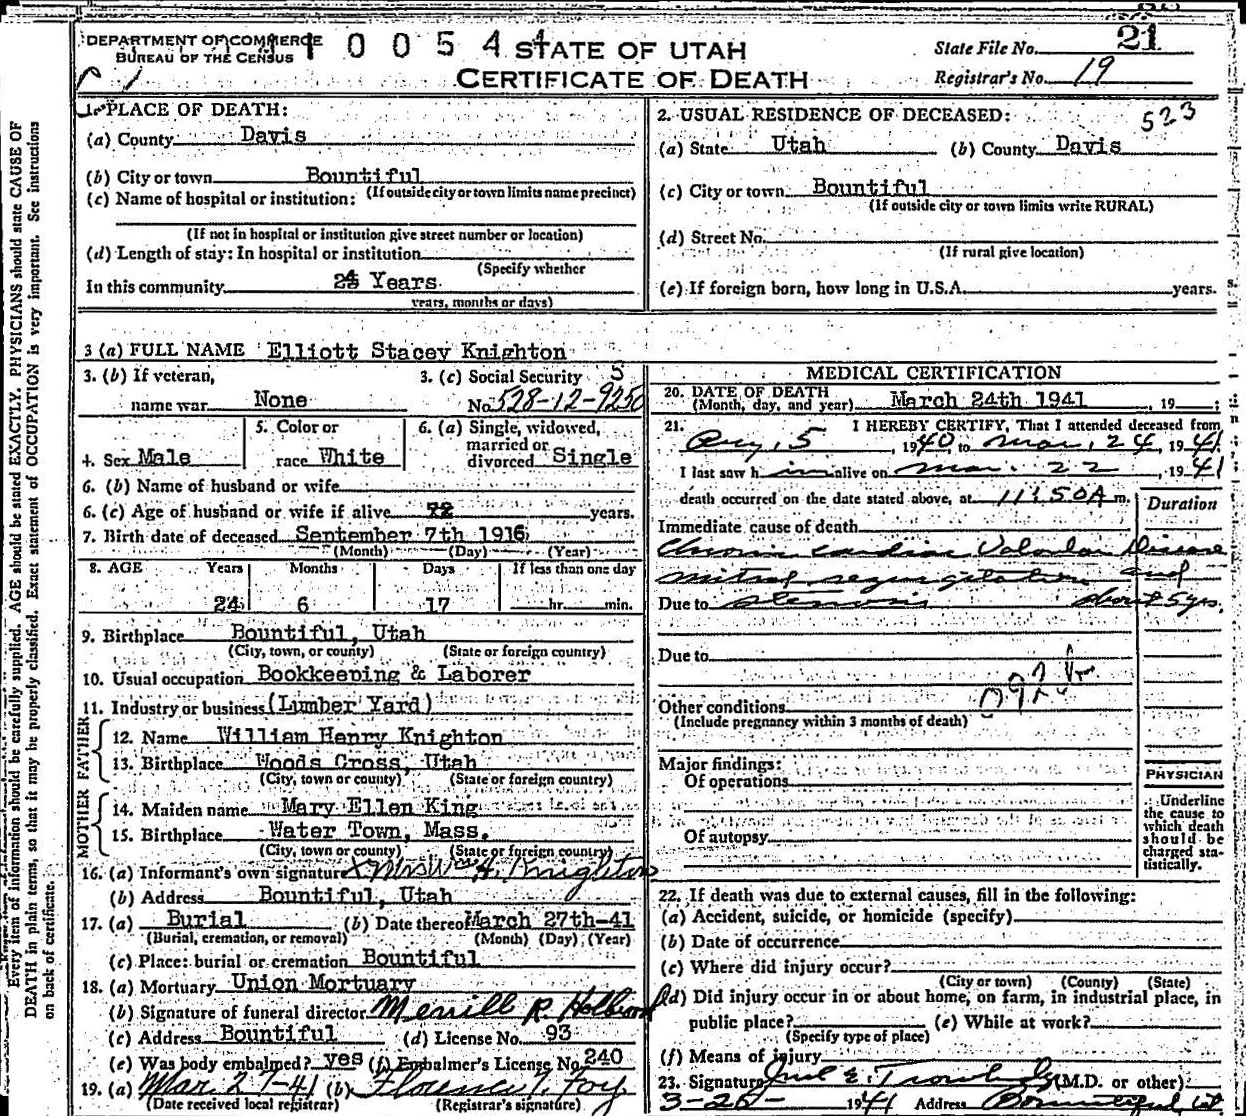 DEPARTMENT OF COMMERCE
BUREAU OF THE CENSUS
1 0 0 5 4 4
STATE OF UTAH
CERTIFICATE OF DEATH
State File No. 21
Registrar's No. 19
1. PLACE OF DEATH:
(a) County Davis
(b) City or town Bountiful
(If outside city or town limits name precinct)
(c) Name of hospital or institution:
(If not in hospital or institution give street number or location)
(d) Length of stay: In hospital or institution
(Specify whether
In this community 24 Years
years, months or days)
2. USUAL RESIDENCE OF DECEASED: 523
(a) State Utah (b) County Davis
(c) City or town Bountiful
(If outside city or town limits write RURAL)
(d) Street No.
(If rural give location)
(e) If foreign born, how long in U.S.A. years.
3 (a) FULL NAME Elliott Stacey Knighton
3. (b) If veteran, name war None
3. (c) Social Security No. 528-12-9250
4. Sex Male
5. Color or race White
6. (a) Single, widowed, married or divorced Single
6. (b) Name of husband or wife
6. (c) Age of husband or wife if alive 72 years.
7. Birth date of deceased September 7th 1916
(Month) (Day) (Year)
8. AGE Years Months Days If less than one day
24 6 17 hr. min.
9. Birthplace Bountiful, Utah
(City, town, or county) (State or foreign country)
10. Usual occupation Bookkeeping & Laborer
11. Industry or business (Lumber Yard)
FATHER
12. Name William Henry Knighton
13. Birthplace Woods Cross, Utah
(City, town or county) (State or foreign country)
MOTHER
14. Maiden name Mary Ellen King
15. Birthplace Water Town, Mass.
(City, town or county) (State or foreign country)
16. (a) Informant's own signature x Mrs Wm H. Knighton
(b) Address Bountiful, Utah
17. (a) Burial (b) Date thereof March 27th-41
(Burial, cremation, or removal) (Month) (Day) (Year)
(c) Place: burial or cremation Bountiful
18. (a) Mortuary Union Mortuary
(b) Signature of funeral director Merrill R. Holbrook
(c) Address Bountiful (d) License No. 93
(e) Was body embalmed? yes (f) Embalmer's License No. 240
19. (a) Mar. 27-41 (b) Florence T. Foy
(Date received local registrar) (Registrar's signature)
MEDICAL CERTIFICATION
20. DATE OF DEATH
(Month, day, and year) March 24th 1941, 19 ;
21. I HEREBY CERTIFY, That I attended deceased from
Aug, 5, 1940, to Mar, 24, 1941.
I last saw him alive on Mar. 22, 1941
death occurred on the date stated above, at 11:50A m.
Duration
Immediate cause of death
Chronic cardiac Valvular Disease
mitral regurgitation and
Due to stenosis about 5 yrs.
Due to
Other conditions
(Include pregnancy within 3 months of death)
Major findings:
Of operations
Of autopsy
PHYSICIAN
Underline
the cause to
which death
should be
charged sta-
tistically.
22. If death was due to external causes, fill in the following:
(a) Accident, suicide, or homicide (specify)
(b) Date of occurrence
(c) Where did injury occur?
(City or town) (County) (State)
(d) Did injury occur in or about home, on farm, in industrial place, in
public place? (e) While at work?
(Specify type of place)
(f) Means of injury
23. Signature E. (M.D. or other)
3-26- 1941 Address Bountiful Ut.
Every item of information should be carefully supplied. AGE should be stated EXACTLY. PHYSICIANS should state CAUSE OF
DEATH in plain terms, so that it may be properly classified. Exact statement of OCCUPATION is very important. See instructions
on back of certificate.